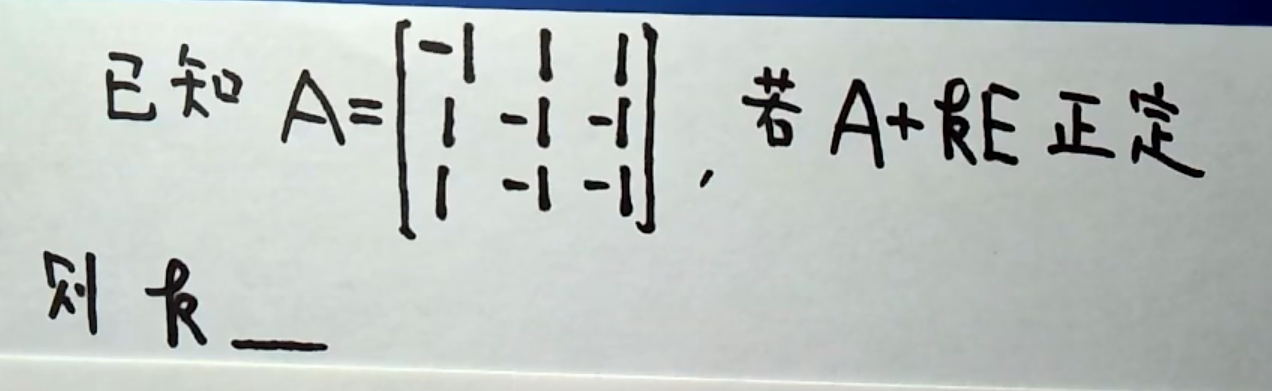 已知 A=[-1 1 1; 1 -1 -1; 1 -1 -1], 若 A+kE 正定
则 k __